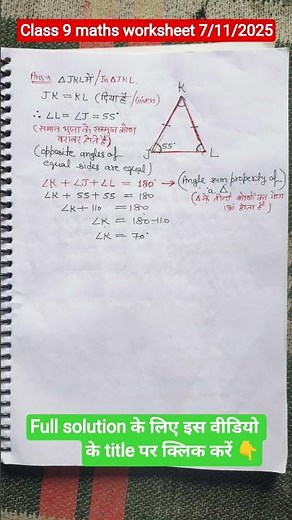 Class 9 maths worksheet 7/11/2025
△JKL में / In △JKL
JK = KL (दिया है /Given)
∴ ∠L = ∠J = 55°
(समान भुजा के सम्मुख कोण
बराबर होते हैं)
(opposite angles of
equal sides are equal)
K
J
55°
L
∠K + ∠J + ∠L = 180° → (Angle sum property of
a △
∠K + 55 + 55 = 180
(△ के तीनों कोणों का योग
180 होता है)
∠K + 110 = 180
∠K = 180-110
∠K = 70°
Full solution के लिए इस वीडियो
के title पर क्लिक करें 👇